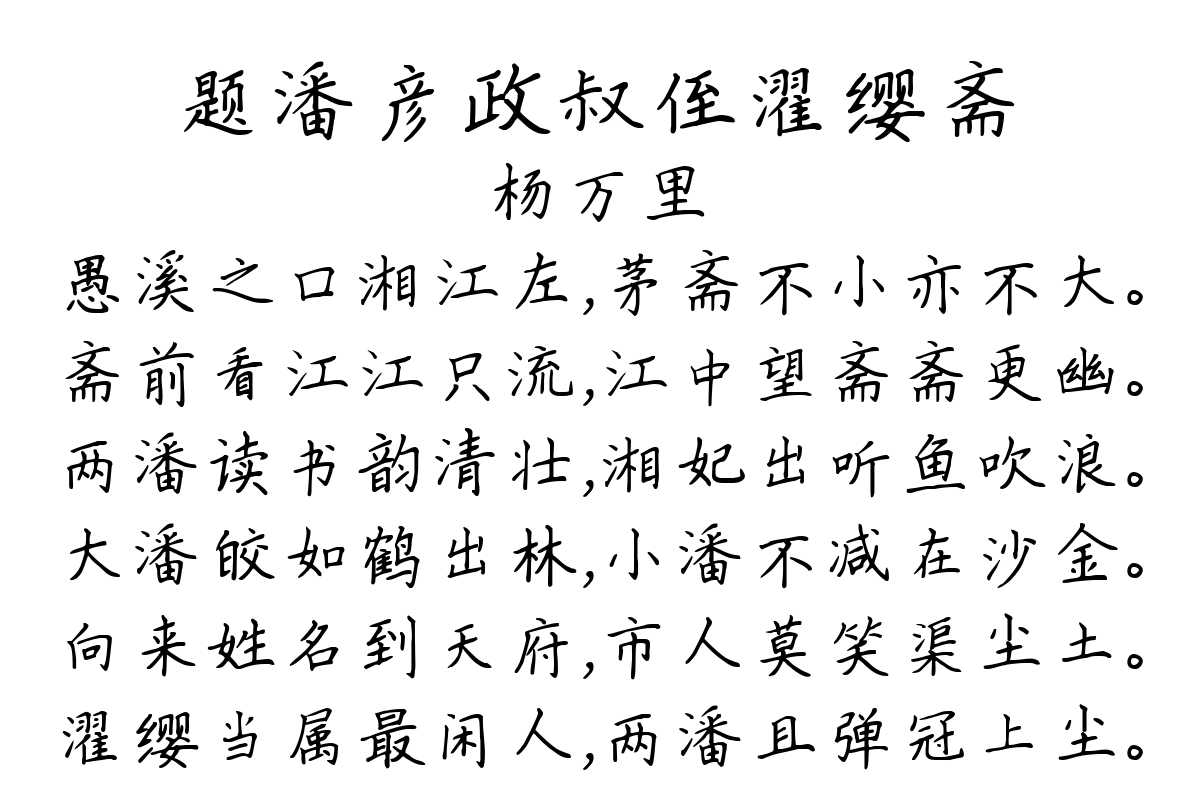 题潘彦政叔侄濯缨斋
杨万里
愚溪之口湘江左,茅斋不小亦不大。
斋前看江江只流,江中望斋斋更幽。
两潘读书韵清壮,湘妃出听鱼吹浪。
大潘皎如鹤出林,小潘不减在沙金。
向来姓名到天府,市人莫笑渠尘土。
濯缨当属最闲人,两潘且弹冠上尘。